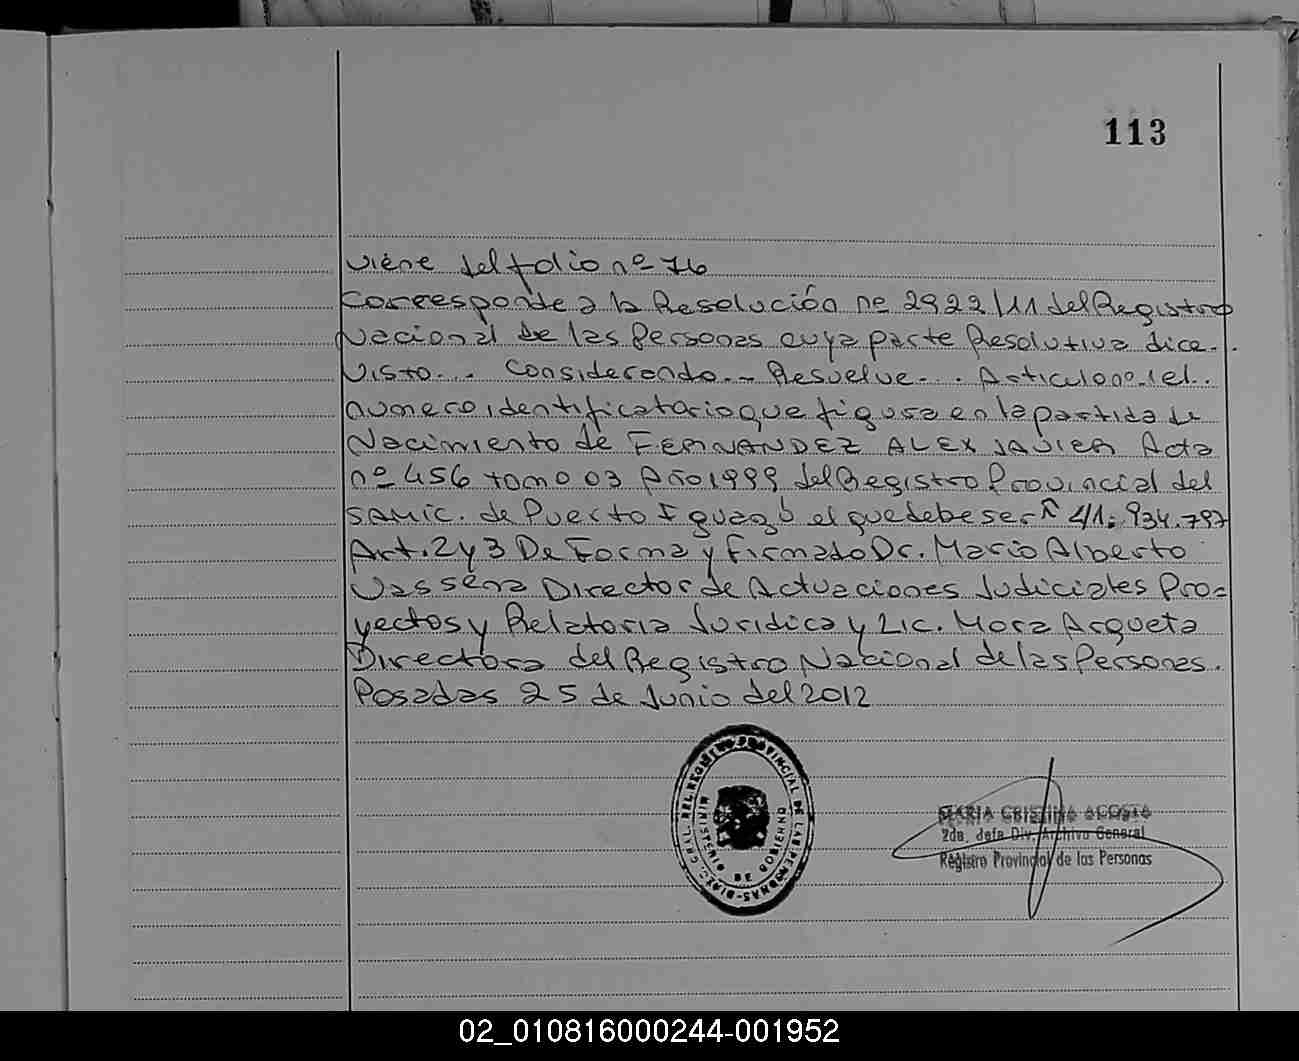 113
viene del folio nº 76
Corresponde a la Resolución nº 2922/11 del Registro
Nacional de las Personas cuya parte Resolutiva dice..
Visto... Considerando... Resuelve... Articulo nº 1 el..
numero identificatario que figura en la partida de
Nacimiento de FERNANDEZ ALEX JAVIER Acta
nº 456 tomo 03 Año 1999 del Registro Provincial del
SAMIC. de Puerto Iguazú el que debe ser Nº 41.934.797
Art. 2 y 3 De Forma y firmado Dr. Mario Alberto
Vassena Director de Actuaciones Judiciales Pro=
yectos y Relatoria Juridica y Lic. Mora Arqueta
Directora del Registro Nacional de las Personas.
Posadas 25 de Junio del 2012
DIREC. GRAL. DEL REGISTRO PROVINCIAL DE LAS PERSONAS
MINISTERIO DE GOBIERNO
MARIA CRISTINA ACOSTA
2da. Jefa Div. Archivo General
Registro Provincial de las Personas
02_010816000244-001952